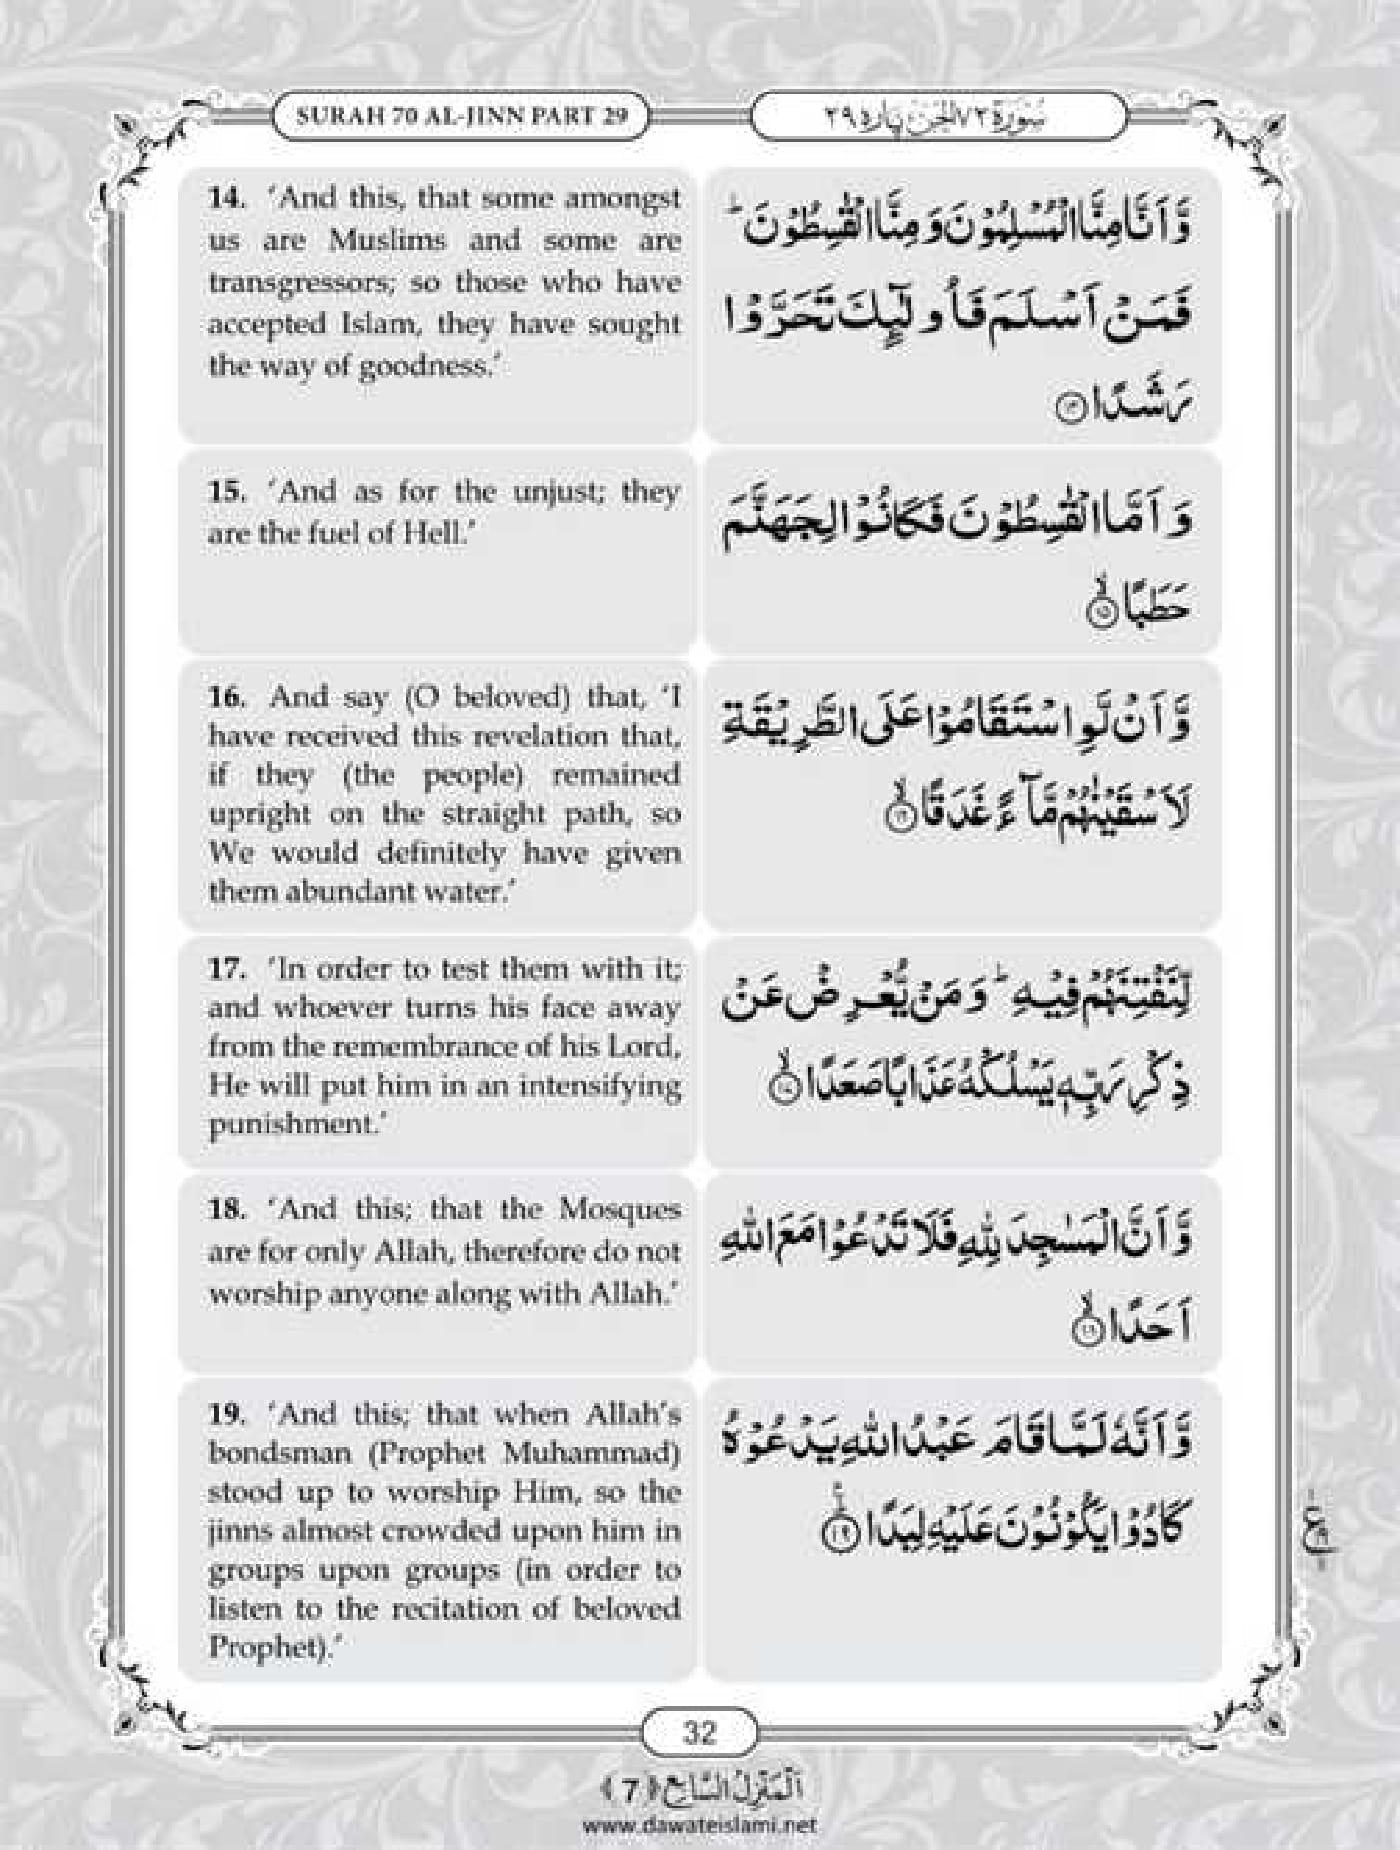 SURAH 70 AL-JINN PART 29
سُوْرَةُ ٧٢ الْجِنّ پاره ٢٩
14. ‘And this, that some amongst
us are Muslims and some are
transgressors; so those who have
accepted Islam, they have sought
the way of goodness.’
وَّ اَنَّا مِنَّا الْمُسْلِمُوْنَ وَ مِنَّا الْقٰسِطُوْنَ ؕ
فَمَنْ اَسْلَمَ فَاُولٰٓىِٕكَ تَحَرَّوْا
رَشَدًا ۝۱۴
15. ‘And as for the unjust; they
are the fuel of Hell.’
وَ اَمَّا الْقٰسِطُوْنَ فَكَانُوْا لِجَهَنَّمَ
حَطَبًا ۙ۝۱۵
16. And say (O beloved) that, ‘I
have received this revelation that,
if they (the people) remained
upright on the straight path, so
We would definitely have given
them abundant water.’
وَّ اَنْ لَّوِ اسْتَقَامُوْا عَلَى الطَّرِيْقَةِ
لَاَسْقَيْنٰهُمْ مَّآءً غَدَقًا ۙ۝۱۶
17. ‘In order to test them with it;
and whoever turns his face away
from the remembrance of his Lord,
He will put him in an intensifying
punishment.’
لِّنَفْتِنَهُمْ فِيْهِ ؕ وَ مَنْ يُّعْرِضْ عَنْ
ذِكْرِ رَبِّهٖ يَسْلُكْهُ عَذَابًا صَعَدًا ۙ۝۱۷
18. ‘And this; that the Mosques
are for only Allah, therefore do not
worship anyone along with Allah.’
وَّ اَنَّ الْمَسٰجِدَ لِلّٰهِ فَلَا تَدْعُوْا مَعَ اللّٰهِ
اَحَدًا ۙ۝۱۸
19. ‘And this; that when Allah’s
bondsman (Prophet Muhammad)
stood up to worship Him, so the
jinns almost crowded upon him in
groups upon groups (in order to
listen to the recitation of beloved
Prophet).’
وَّ اَنَّهٗ لَمَّا قَامَ عَبْدُ اللّٰهِ يَدْعُوْهُ
كَادُوْا يَكُوْنُوْنَ عَلَيْهِ لِبَدًا ۝۱۹
32
اَلْمَنْزِلُ السَّابِع ﴿7﴾
www.dawateislami.net